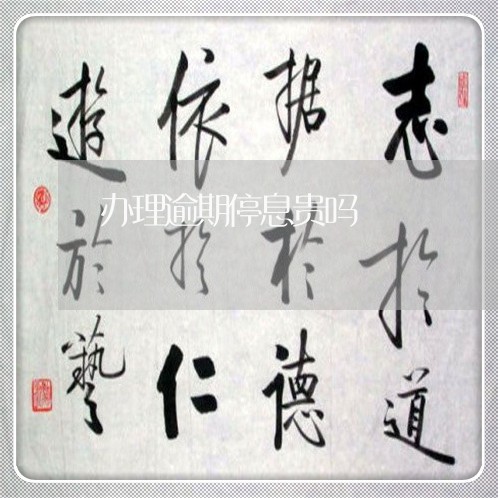 志於道
据於德
依於仁
遊於藝
办理逾期停息贵吗